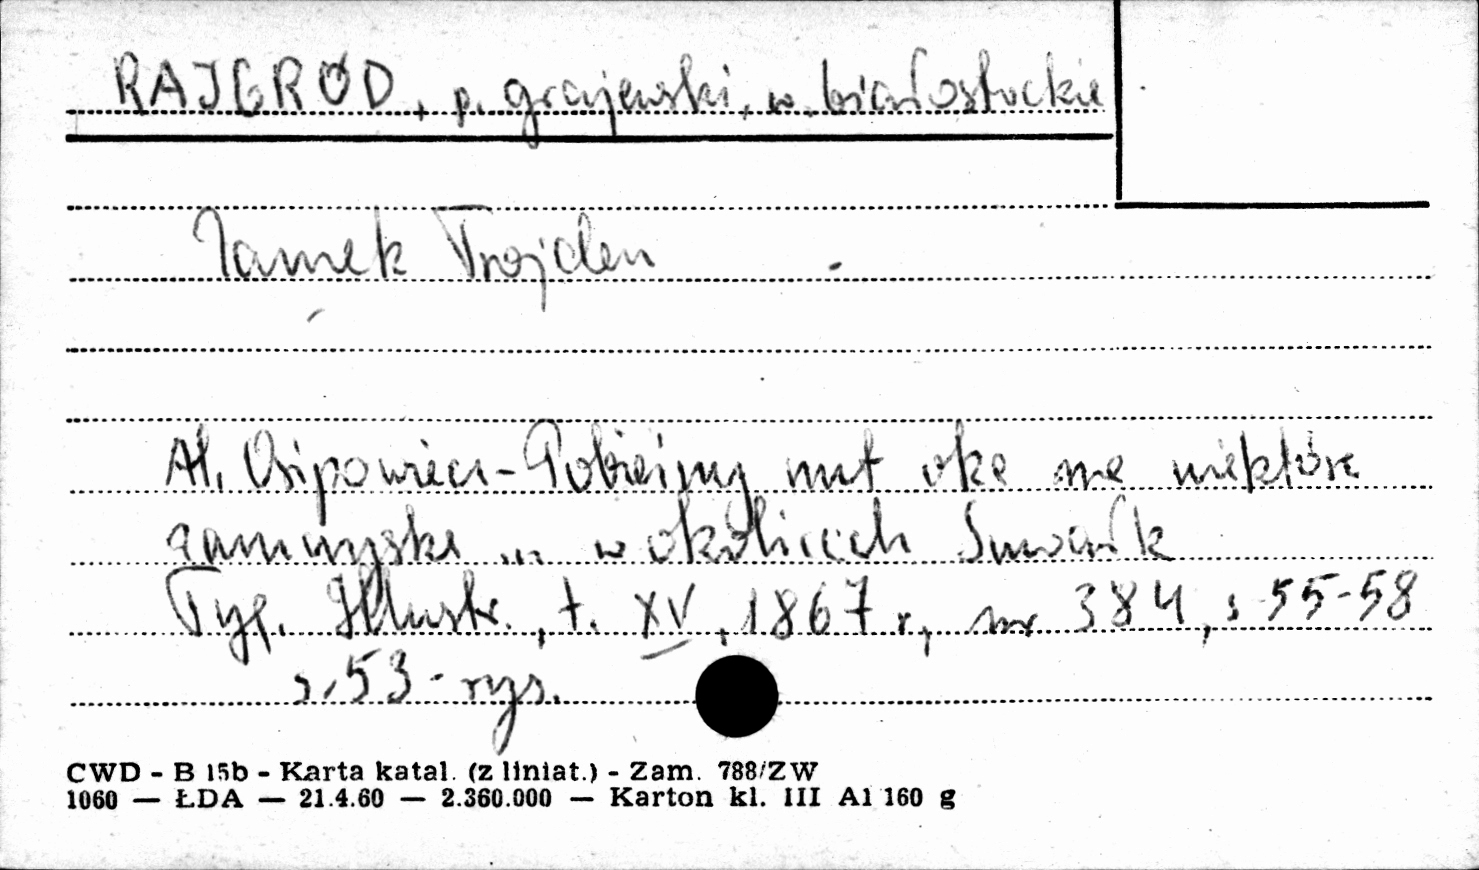 RAJGRÓD, p. grajewski, w. białostockie
Zamek Trojden
Al. Osipowicz - Pobieżny rzut oka na niektóre
zamczyska ... w okolicach Suwałk
Tyg. Illustr., t. XV, 1867 r., nr 384, s 55-58
s. 53 - rys.
CWD - B 15b - Karta katal. (z liniat.) - Zam. 788/ZW
1060 — ŁDA — 21.4.60 — 2.360.000 — Karton kl. III A1 160 g